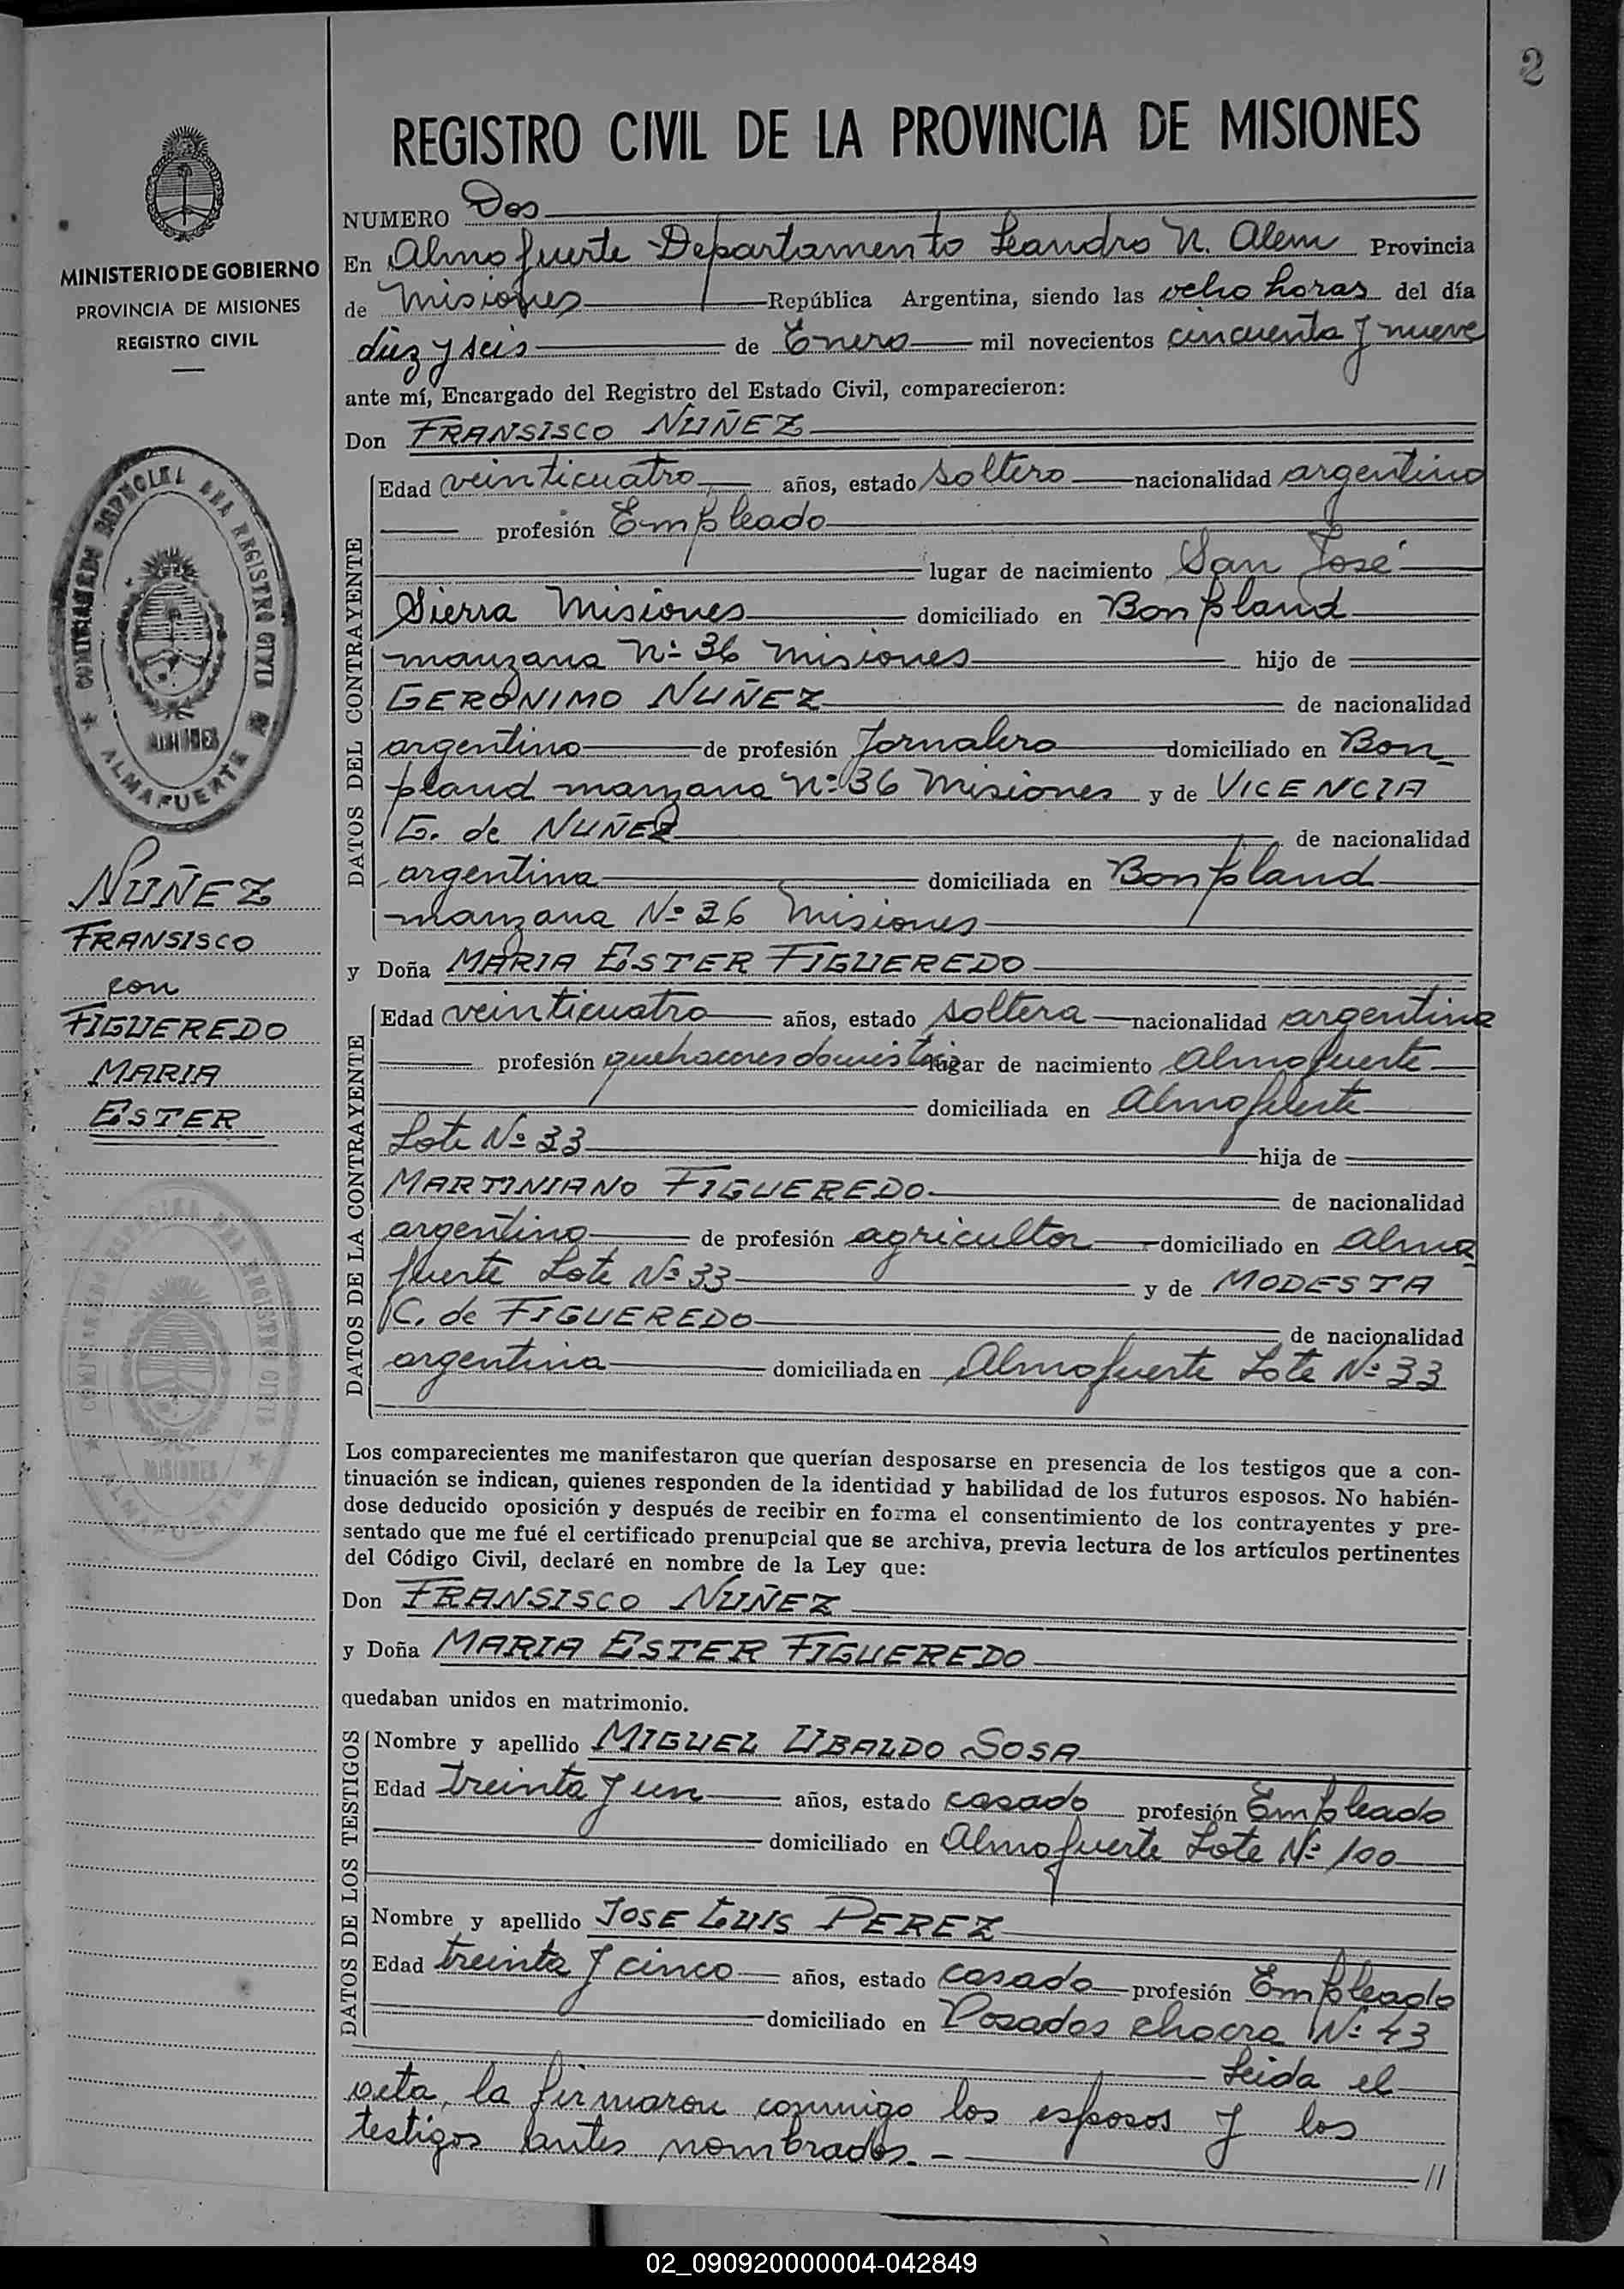 2
REGISTRO CIVIL DE LA PROVINCIA DE MISIONES
MINISTERIO DE GOBIERNO
PROVINCIA DE MISIONES
REGISTRO CIVIL
ALMAFUERTE
MISIONES
NUÑEZ
FRANSISCO
con
FIGUEREDO
MARIA
ESTER
NUMERO Dos
En Almafuerte Departamento Leandro N. Alem Provincia
de Misiones República Argentina, siendo las ocho horas del día
diez y seis de Enero mil novecientos cincuenta y nueve
ante mí, Encargado del Registro del Estado Civil, comparecieron:
Don FRANSISCO NUÑEZ
DATOS DEL CONTRAYENTE
Edad veinticuatro años, estado soltero nacionalidad argentino
profesión Empleado
lugar de nacimiento San José
Sierra Misiones domiciliado en Bonpland
manzana Nº 36 Misiones hijo de
GERONIMO NUÑEZ de nacionalidad
argentino de profesión Jornalero domiciliado en Bon
pland manzana Nº 36 Misiones y de VICENCIA
G. de NUÑEZ de nacionalidad
argentina domiciliada en Bonpland
manzana Nº 36 Misiones
y Doña MARIA ESTER FIGUEREDO
DATOS DE LA CONTRAYENTE
Edad veinticuatro años, estado soltera nacionalidad argentina
profesión quehaceres domésticos lugar de nacimiento Almafuerte
domiciliada en Almafuerte
Lote Nº 33 hija de
MARTINIANO FIGUEREDO de nacionalidad
argentino de profesión agricultor domiciliado en Alma
fuerte Lote Nº 33 y de MODESTA
C. de FIGUEREDO de nacionalidad
argentina domiciliada en Almafuerte Lote Nº 33
Los comparecientes me manifestaron que querían desposarse en presencia de los testigos que a con-
tinuación se indican, quienes responden de la identidad y habilidad de los futuros esposos. No habién-
dose deducido oposición y después de recibir en forma el consentimiento de los contrayentes y pre-
sentado que me fué el certificado prenupcial que se archiva, previa lectura de los artículos pertinentes
del Código Civil, declaré en nombre de la Ley que:
Don FRANSISCO NUÑEZ
y Doña MARIA ESTER FIGUEREDO
quedaban unidos en matrimonio.
DATOS DE LOS TESTIGOS
Nombre y apellido MIGUEL UBALDO SOSA
Edad treinta y un años, estado casado profesión Empleado
domiciliado en Almafuerte Lote Nº 100
Nombre y apellido JOSE LUIS PEREZ
Edad treinta y cinco años, estado casado profesión Empleado
domiciliado en Posadas chacra Nº 43
Leida el
acta, la firmaron conmigo los esposos y los
testigos antes nombrados.-
//
02_090920000004-042849